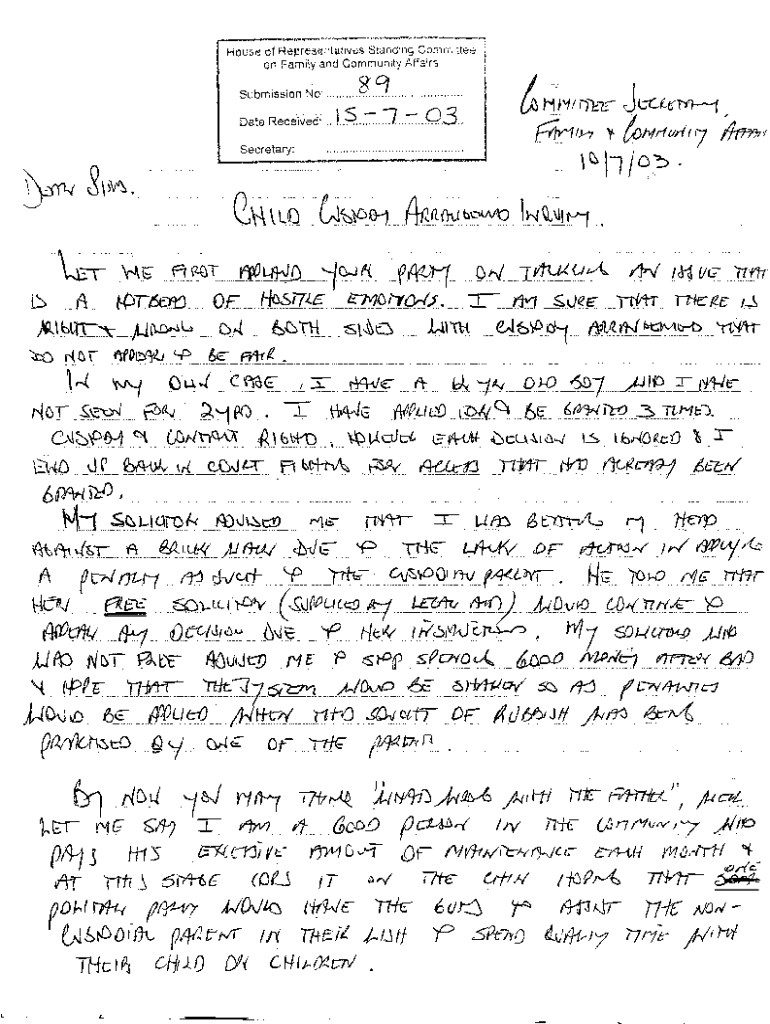 House of Representatives Standing Committee
on Family and Community Affairs
Submission No: 89
Date Received: 15-7-03
Secretary:
COMMITTEE SECRETARY,
FAMILY & COMMUNITY AFFAIRS
10/7/03.
DEAR SIRS.
CHILD CUSTODY ARRANGEMENTS INQUIRY.
LET ME FIRST APPLAUD YOUR PARTY ON TACKLING AN ISSUE THAT
IS A HOTBED OF HOSTILE EMOTIONS. I AM SURE THAT THERE IS
RIGHT & WRONG ON BOTH SIDES WITH CUSTODY ARRANGEMENTS THAT
DO NOT APPEAR TO BE FAIR.
IN MY OWN CASE, I HAVE A YR OLD BOY WHO I HAVE
NOT SEEN FOR 2 YRS. I HAVE APPLIED & BE GRANTED 3 TIMES
CUSTODY & CONTACT RIGHTS, HOWEVER EACH DECISION IS IGNORED & I
END UP BACK IN COURT FIGHTING FOR ACCESS THAT HAD ALREADY BEEN
GRANTED.
MY SOLICITOR ADVISED ME THAT I WAS BEATING MY HEAD
AGAINST A BRICK WALL DUE TO THE LACK OF ACTION IN APPLYING
A PENALTY AS SUCH TO THE CUSTODIAL PARENT. HE TOLD ME THAT
HER FREE SOLICITOR (SUPPLIED BY LEGAL AID) WOULD CONTINUE TO
APPEAL ANY DECISION DUE TO HER INSTRUCTIONS. MY SOLICITOR WHO
WAS NOT FREE ADVISED ME TO STOP SPENDING GOOD MONEY AFTER BAD
& HOPE THAT THE SYSTEM WOULD BE SHAKEN SO AS PENALTIES
WOULD BE APPLIED WHEN THIS SORT OF RUBBISH WAS BEING
PRACTISED BY ONE OF THE PARENTS.
BY NOW YOU MAY THINK "WHATS WRONG WITH THE FATHER", WELL
LET ME SAY I AM A GOOD PERSON IN THE COMMUNITY WHO
PAYS HIS EXCESSIVE AMOUNT OF MAINTENANCE EACH MONTH &
AT THIS STAGE COPS IT ON THE CHIN HOPING THAT ONE
POLITICAL PARTY WOULD HAVE THE GUTS TO ASSIST THE NON-
CUSTODIAL PARENT IN THEIR WISH TO SPEND QUALITY TIME WITH
THEIR CHILD OR CHILDREN.